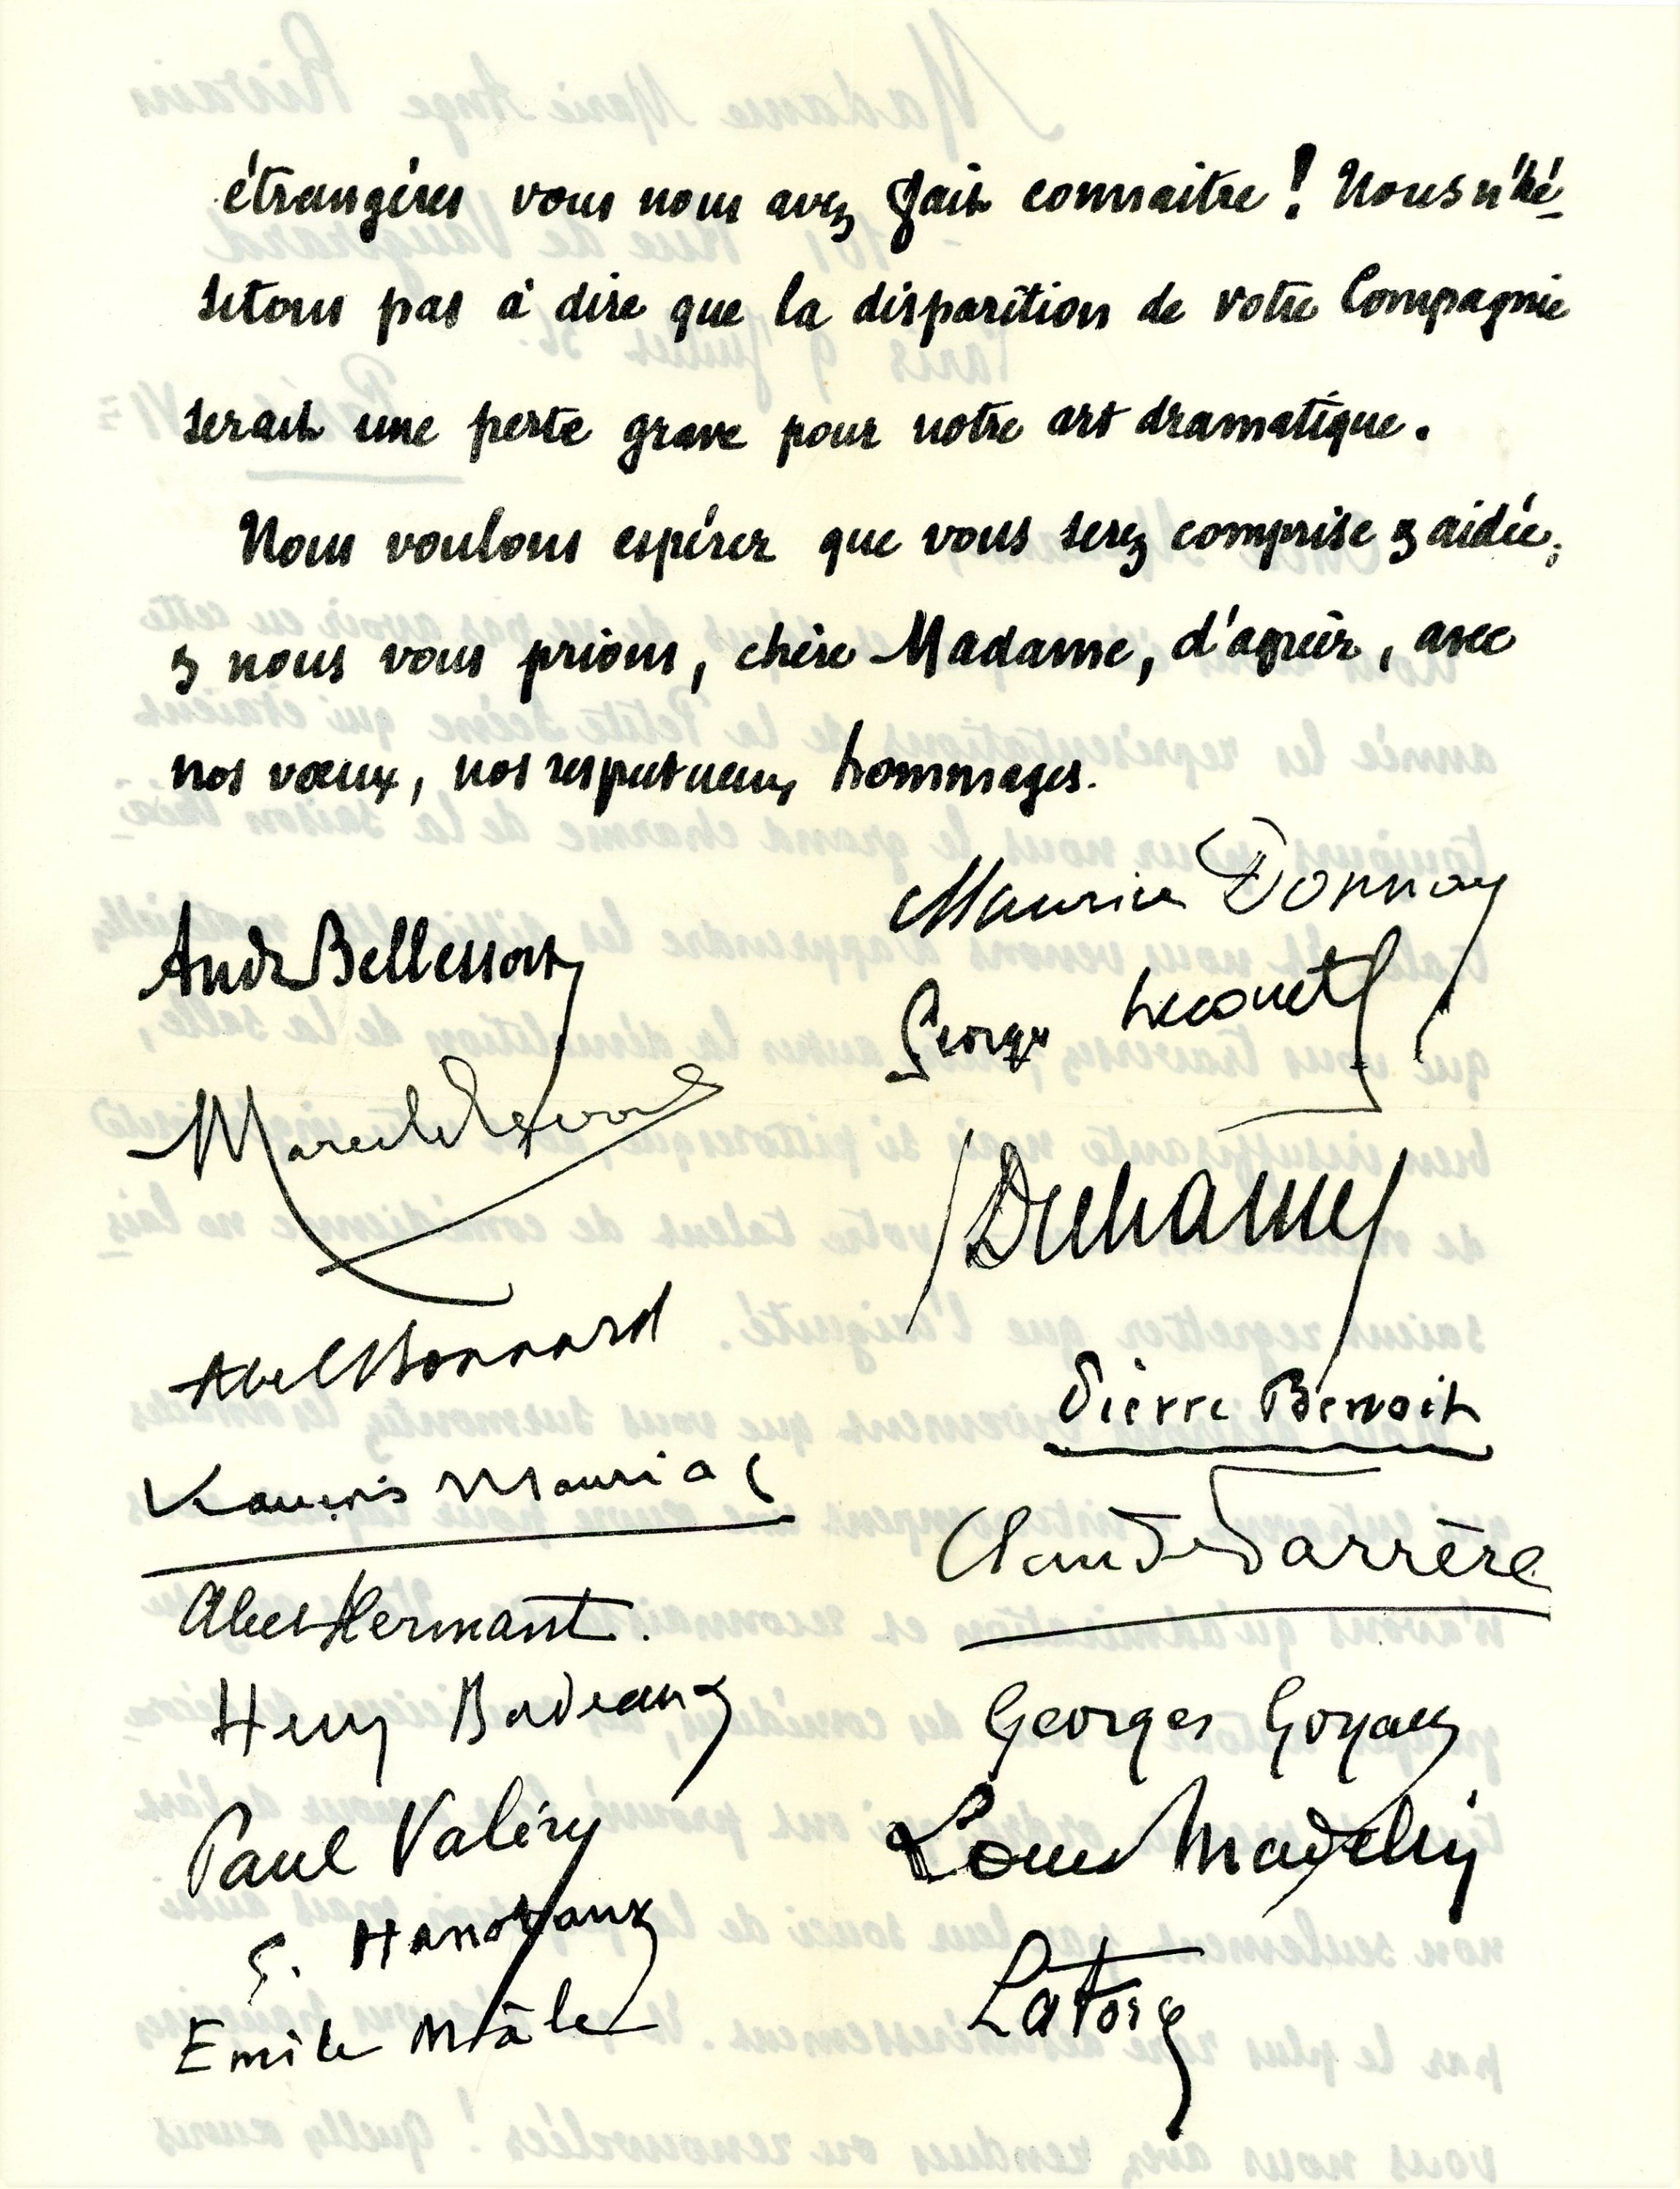 étrangères vous nous avez fait connaître ! Nous n'hé-
sitons pas à dire que la disparition de votre Compagnie
serait une perte grave pour notre art dramatique.
Nous voulons espérer que vous serez comprise & aidée,
& nous vous prions, chère Madame, d'agréer, avec
nos vœux, nos respectueux hommages.
Maurice Donnay
André Bellessort
Georges Lecomte
Marcel Prévost
Duhamel
Abel Bonnard
Pierre Benoit
François Mauriac
Claude Farrère
Abel Hermant.
Henry Bordeaux
Georges Goyau
Paul Valéry
Louis Madelin
G. Hanotaux
Emile Mâle
La Force